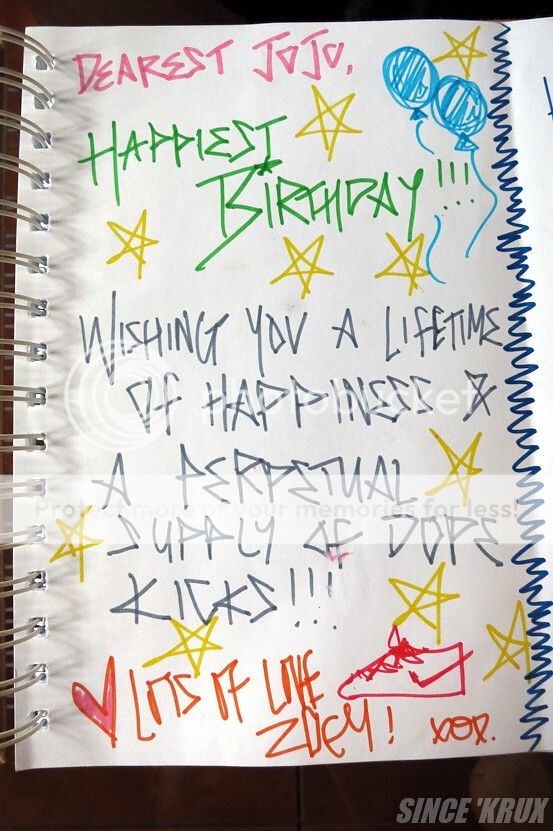 DEAREST JOJO,
HAPPIEST
BIRTHDAY!!!
WISHING YOU A LIFETIME
OF HAPPINESS &
A PERPETUAL
SUPPLY OF DOPE
KICKS!!!
LOTS OF LOVE
ZOEY! xox.
photobucket
Protect more of your memories for less!
SINCE 'KRUX